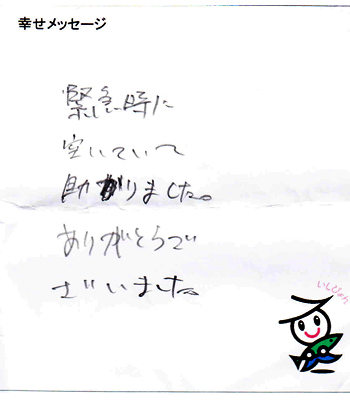 幸せメッセージ
緊急時に
空いていて
助かりました。
ありがとうご
ざいました。